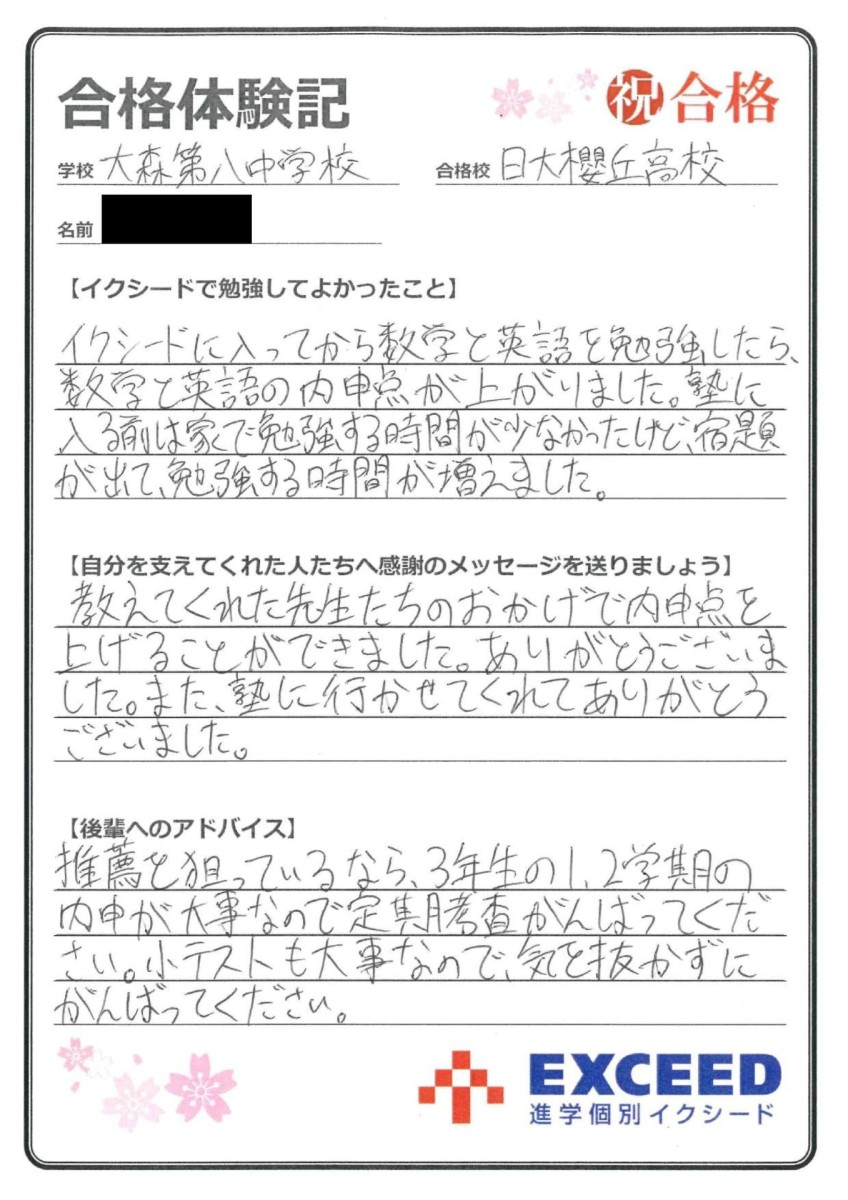 合格体験記
祝 合格
学校 大森第八中学校
合格校 日大櫻丘高校
名前
【イクシードで勉強してよかったこと】
イクシードに入ってから数学と英語を勉強したら、
数学と英語の内申点が上がりました。塾に
入る前は家で勉強する時間が少なかったけど、宿題
が出て、勉強する時間が増えました。
【自分を支えてくれた人たちへ感謝のメッセージを送りましょう】
教えてくれた先生たちのおかげで内申点を
上げることができました。ありがとうございま
した。また、塾に行かせてくれてありがとう
ございました。
【後輩へのアドバイス】
推薦を狙っているなら、3年生の1,2学期の
内申が大事なので定期考査がんばってくだ
さい。小テストも大事なので、気を抜かずに
がんばってください。
EXCEED
進学個別イクシード